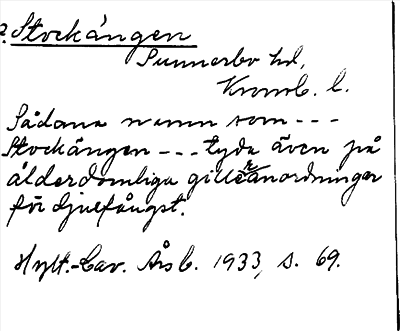 ?. Stockängen
Sunnerbo hd,
Kronob. l.
Sådana namn som ---
Stockängen --- tyda även på
ålderdomliga gilleranordningar
för djurfångst.
Hylt.-Cav. Årsb. 1933, s. 69.